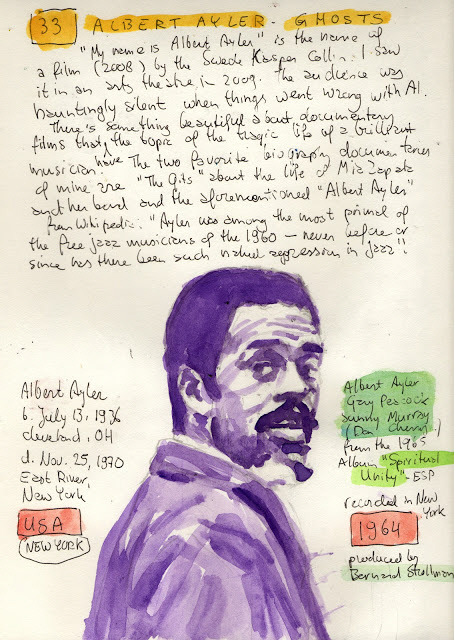 33 ALBERT AYLER - GHOSTS
"My name is Albert Ayler" is the name of
a film (2008) by the Swede Kasper Collin. I saw
it in an arts theatre in 2009. The audience was
hauntingly silent when things went wrong with Al.
There's something beautiful about documentary
films that have the topic of the tragic life of a brilliant
musician. The two favorite biography documentaries
of mine are "The Gits" about the life of Mia Zapata
and her band and the aforementioned "Albert Ayler"
from Wikipedia: "Ayler was among the most primal of
the free jazz musicians of the 1960 – never before or
since has there been such naked aggression in jazz".
Albert Ayler
b. July 13, 1936
Cleveland, OH
d. Nov. 25, 1970
East River,
New York
USA
NEW YORK
Albert Ayler
Gary Peacock
Sunny Murray
(Don Cherry)
from the 1965
Album "Spiritual
Unity" - ESP
recorded in New
York
1964
produced by
Bernard Stollman